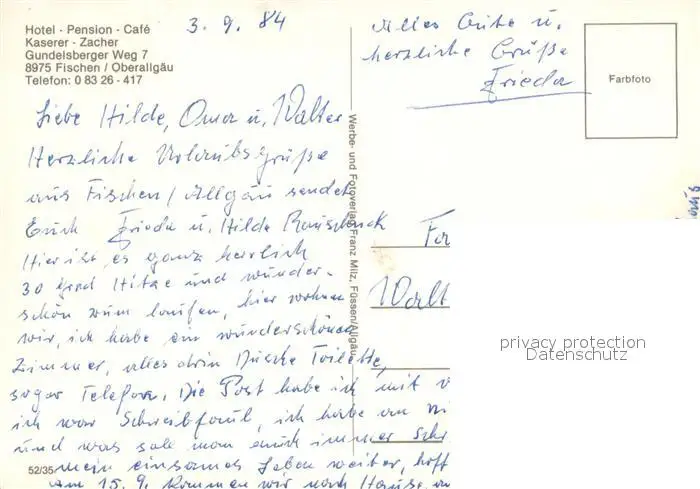 Hotel - Pension - Café
Kaserer - Zacher
Gundelsberger Weg 7
8975 Fischen / Oberallgäu
Telefon: 0 83 26 - 417
3. 9. 84
Liebe Hilde, Oma u. Walter
Herzliche Urlaubsgrüße
aus Fischen / Allgäu sendet
Euch Frieda u. Hilde
Hier ist es ganz herrlich
30 Grad Hitze und wunder-
schön zum laufen, hier wohnen
wir, ich habe ein wunderschönes
Zimmer, alles drin Dusche Toilette,
sogar Telefon. Die Post habe ich mit
ich war Schreibfaul, ich habe an
und was soll man euch immer
mein einsames Leben weiter, hoff
am 15. 9. kommen wir nach Hause
52/35
Werbe- und Fotoverlag Franz Milz, Füssen/Allgäu
Alles Gute u.
herzliche Grüße
Frieda
Farbfoto
Walt
privacy protection
Datenschutz